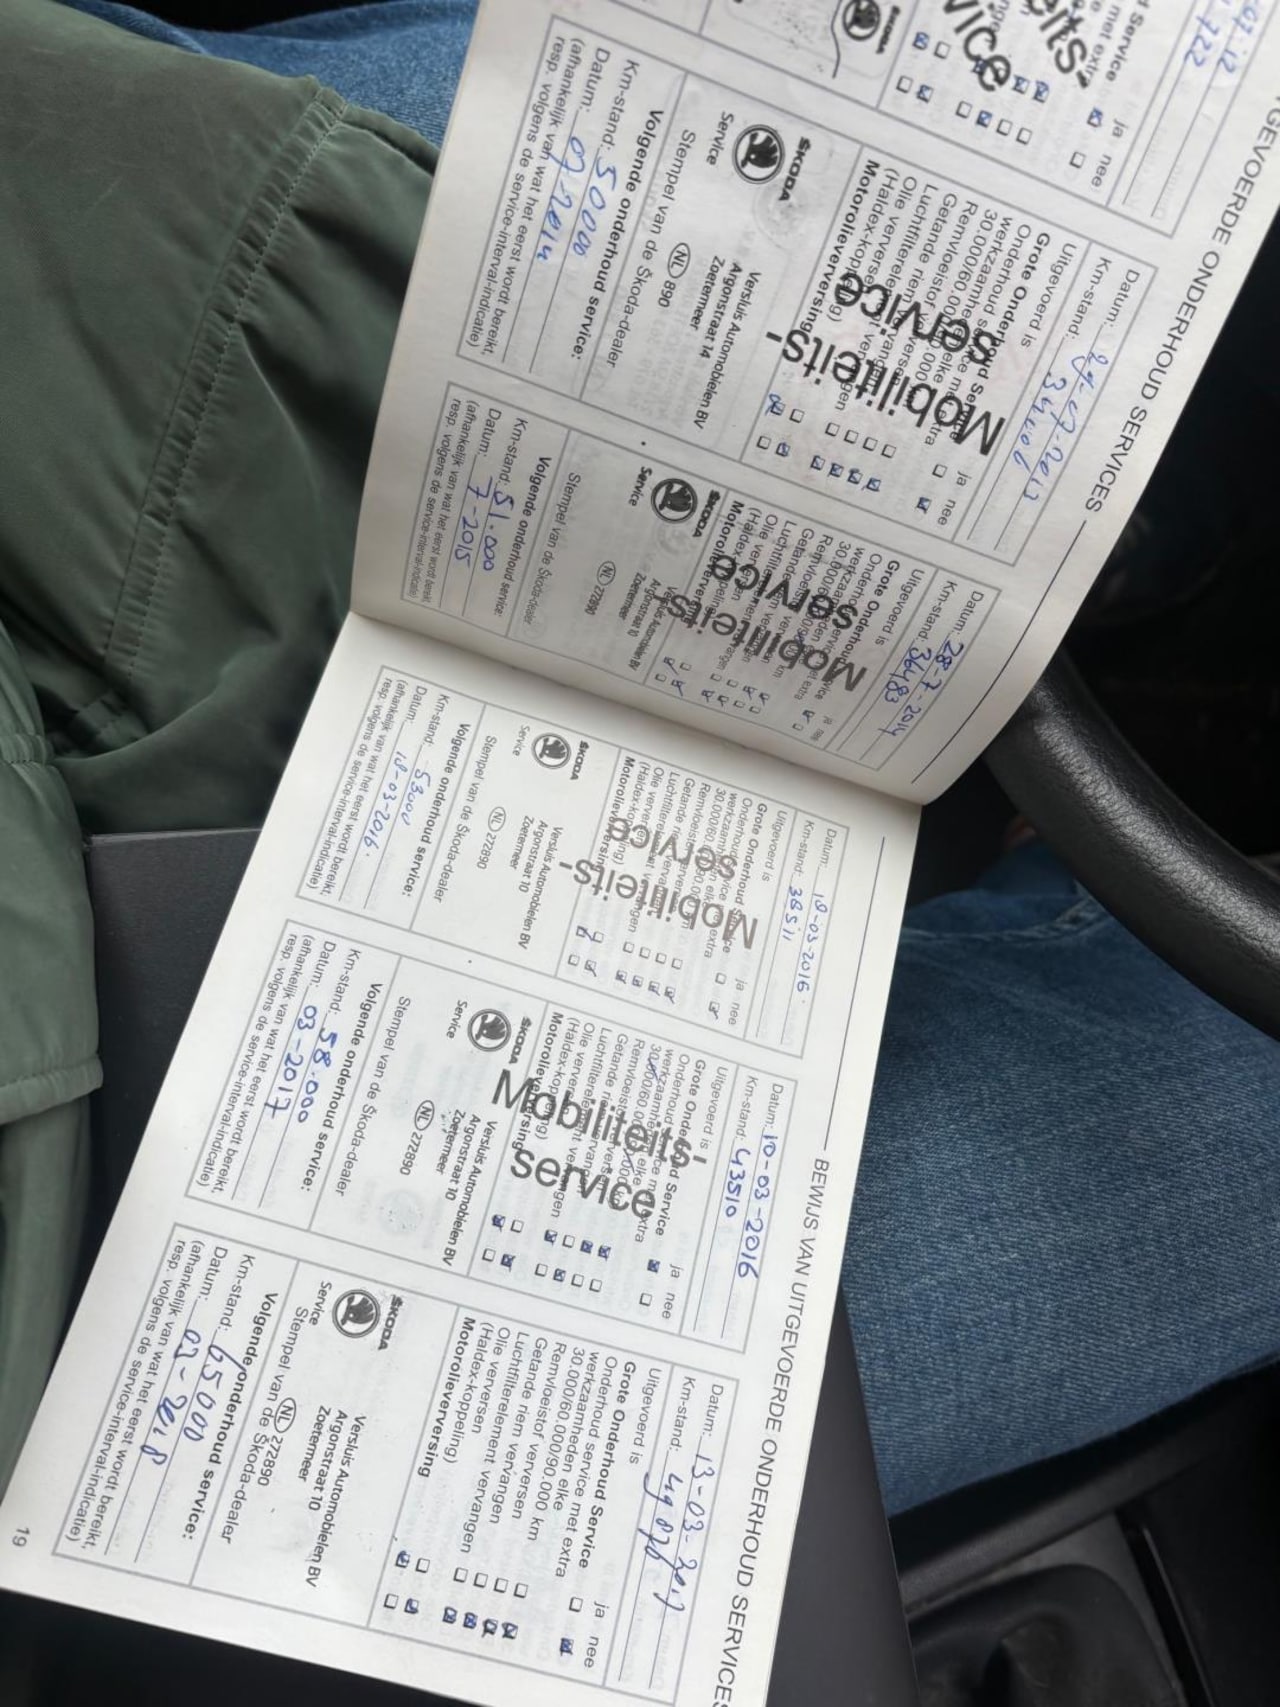 UITGEVOERDE ONDERHOUD SERVICES
722
d Service
met extra
ja nee
ŠKODA
Datum: 2013
Km-stand:
Uitgevoerd is
ja nee
Grote Onderhoud Service
Onderhoud service met extra
werkzaamheden elke
30.000/60.000/90.000 km
Remvloeistof verversen
Getande riem vervangen
Luchtfilterelement vervangen
Olie verversen
(Haldex-koppeling)
Motorolieverversing
Mobiliteits-
service
ŠKODA
Service
Versluis Automobielen BV
Argonstraat 14
Zoetermeer
NL 890
Stempel van de Škoda-dealer
Volgende onderhoud service:
Km-stand: 50000
Datum: 07-2014
(afhankelijk van wat het eerst wordt bereikt,
resp. volgens de service-interval-indicatie)
Datum: 28-7-2014
Km-stand: 36483
Uitgevoerd is
ja nee
Grote Onderhoud Service
Mobiliteits
service
Motorolieverversing
ŠKODA
Service
Versluis Automobielen BV
Argonstraat 10
Zoetermeer
NL 272890
Stempel van de Škoda-dealer
Volgende onderhoud service:
Km-stand: 51.000
Datum: 7-2015
(afhankelijk van wat het eerst wordt bereikt
resp. volgens de service-interval-indicatie)
BEWIJS VAN UITGEVOERDE ONDERHOUD SERVICES
Datum: 18-03-2016.
Km-stand: 38511
Uitgevoerd is
ja nee
Grote Onderhoud Service
Onderhoud service met extra
werkzaamheden elke
30.000/60.000/90.000 km
Remvloeistof verversen
Getande riem vervangen
Luchtfilterelement vervangen
Olie verversen
(Haldex-koppeling)
Motorolieverversing
Mobiliteits-
service
ŠKODA
Service
Versluis Automobielen BV
Argonstraat 10
Zoetermeer
NL 272890
Stempel van de Škoda-dealer
Volgende onderhoud service:
Km-stand: 53000
Datum: 18-03-2016.
(afhankelijk van wat het eerst wordt bereikt,
resp. volgens de service-interval-indicatie)
Datum: 10-03-2016
Km-stand: 43510
Uitgevoerd is
ja nee
Grote Onderhoud Service
Onderhoud service met extra
werkzaamheden elke
30.000/60.000/90.000 km
Remvloeistof verversen
Getande riem vervangen
Luchtfilterelement vervangen
Olie verversen
(Haldex-koppeling)
Motorolieverversing
Mobiliteits-
service
ŠKODA
Service
Versluis Automobielen BV
Argonstraat 10
Zoetermeer
NL 272890
Stempel van de Škoda-dealer
Volgende onderhoud service:
Km-stand: 58.000
Datum: 03-2017
(afhankelijk van wat het eerst wordt bereikt,
resp. volgens de service-interval-indicatie)
Datum: 13-03-2017
Km-stand: 49076
Uitgevoerd is
ja nee
Grote Onderhoud Service
Onderhoud service met extra
werkzaamheden elke
30.000/60.000/90.000 km
Remvloeistof verversen
Getande riem vervangen
Luchtfilterelement vervangen
Olie verversen
(Haldex-koppeling)
Motorolieverversing
ŠKODA
Service
Versluis Automobielen BV
Argonstraat 10
Zoetermeer
NL 272890
Stempel van de Škoda-dealer
Volgende onderhoud service:
Km-stand: 65000
Datum: 03-2018
(afhankelijk van wat het eerst wordt bereikt,
resp. volgens de service-interval-indicatie)
19